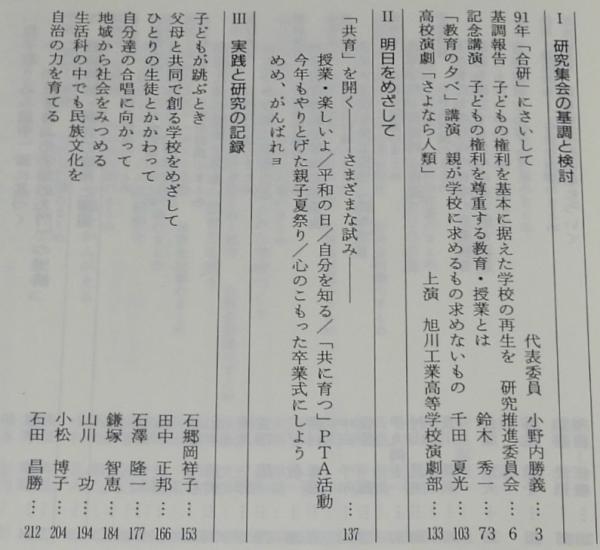 I　研究集会の基調と検討
91年「合研」にさいして　代表委員　小野内勝義…3
基調報告　子どもの権利を基本に据えた学校の再生を　研究推進委員会…6
記念講演　子どもの権利を尊重する教育・授業とは　鈴木　秀一…73
「教育の夕べ」講演　親が学校に求めるもの求めないもの　千田　夏光…103
高校演劇「さよなら人類」　上演　旭川工業高等学校演劇部…133
II　明日をめざして
「共育」を開く――さまざまな試み――…137
授業・楽しいよ/平和の日/自分を知る/「共に育つ」PTA活動
今年もやりとげた親子夏祭り/心のこもった卒業式にしよう
めめ、がんばれョ
III　実践と研究の記録
子どもが跳ぶとき　石郷岡祥子…153
父母と共同で創る学校をめざして　田中　正邦…166
ひとりの生徒とかかわって　石澤　隆一…177
自分達の合唱に向かって　鎌塚　智恵…184
地域から社会をみつめる　山川　功…194
生活科の中でも民族文化を　小松　博子…204
自治の力を育てる　石田　昌勝…212